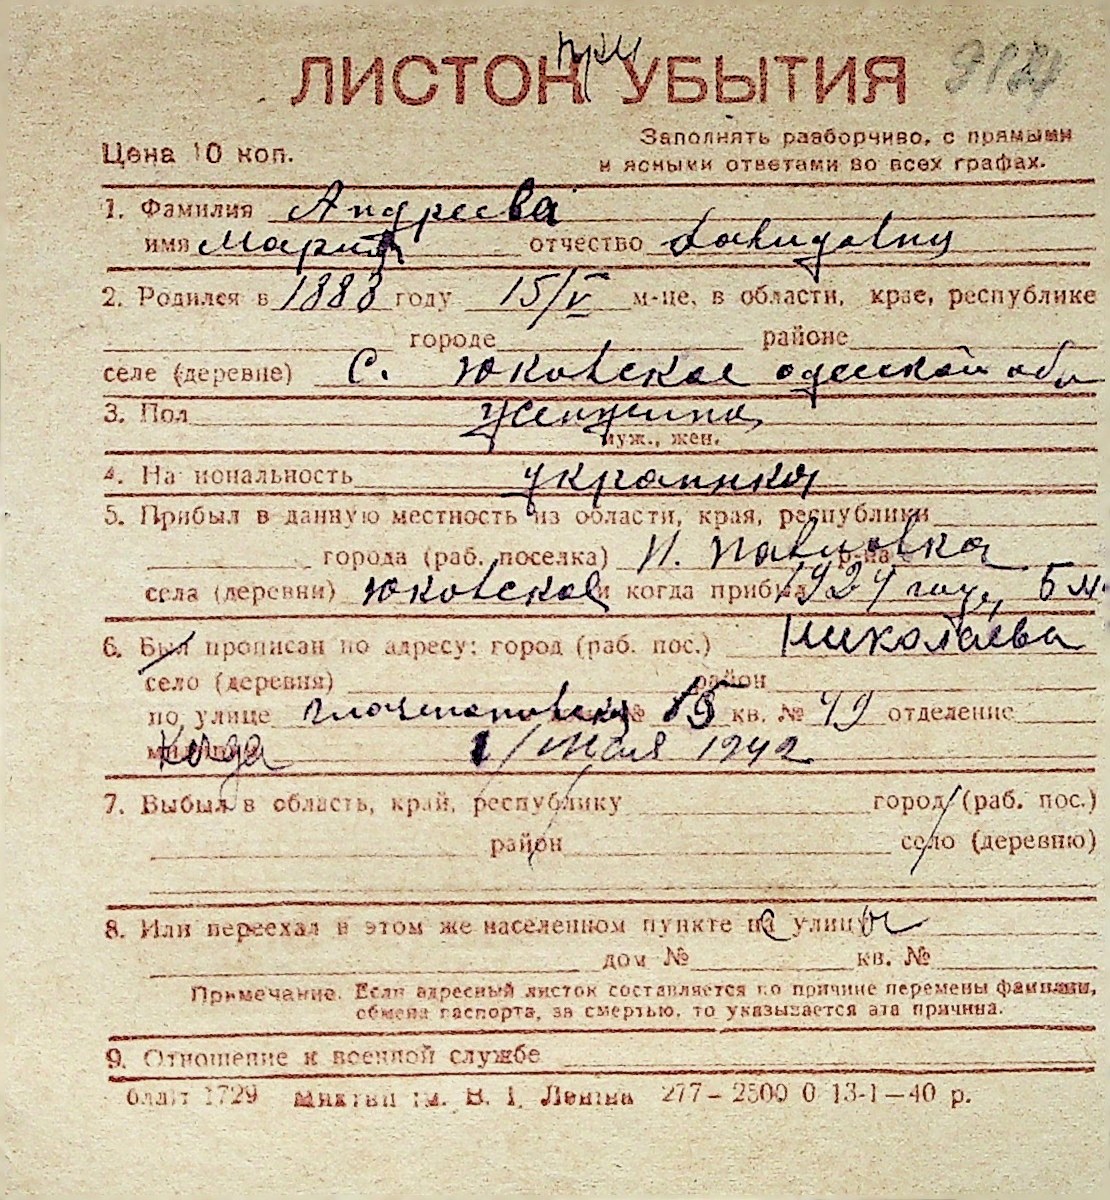 при
ЛИСТОК УБЫТИЯ
Цена 10 коп.
Заполнять разборчиво, с прямыми
и ясными ответами во всех графах.
1. Фамилия Андреева
имя Мария отчество
2. Родился в 1883 году 15/V м-це, в области, крае, республике
городе районе
селе (деревне) С. Юковское одесской обл
3. Пол женщина
муж., жен.
4. Национальность украинка
5. Прибыл в данную местность из области, края, республики
города (раб. поселка) Н. Павловка р-на
села (деревни) Юковское и когда прибыл 1924 году, 5 м.
6. Был прописан по адресу: город (раб. пос.) Николаева
село (деревня) район
по улице № 15 кв. № 42 отделение
милиции Когда 1/Июля 1942
7. Выбыл в область, край, республику город (раб. пос.)
район село (деревню)
8. Или переехал в этом же населенном пункте на улицу
дом № кв. №
Примечание. Если адресный листок составляется по причине перемены фамилии,
обмена паспорта, за смертью, то указывается эта причина.
9. Отношение к военной службе
1729 ім. В. І. Леніна 277–2500 0 13-1–40 р.